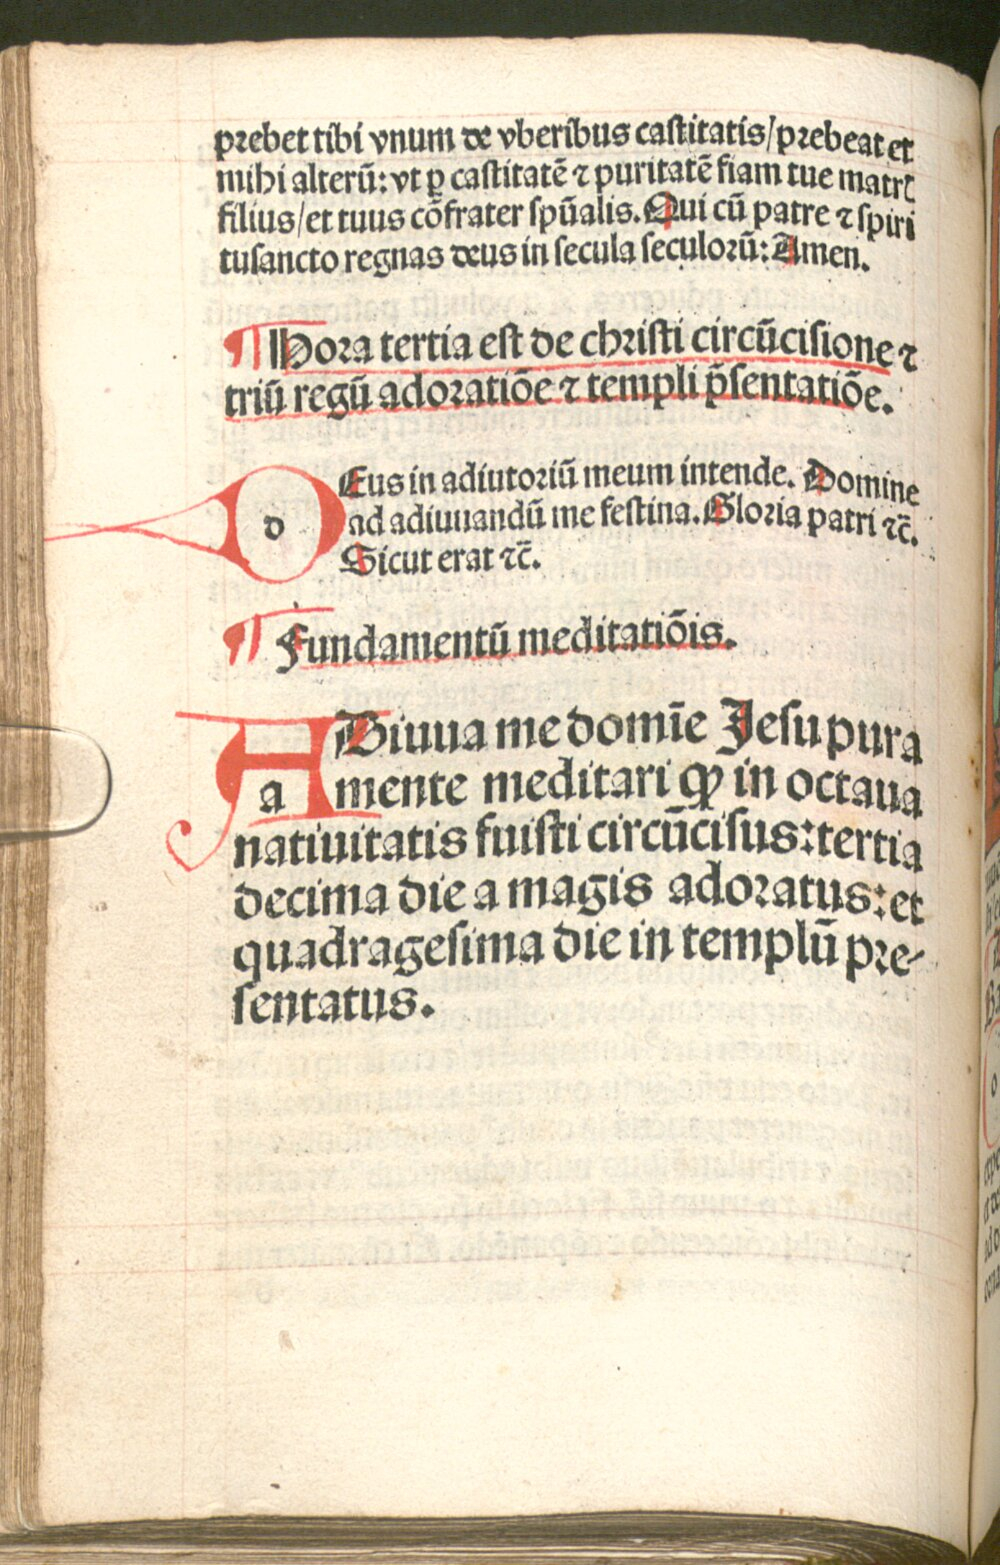 prebet tibi vnum de vberibus castitatis/prebeat et
mihi alterū: vt ꝑ castitatē ⁊ puritatē fiam tue matrꝭ
filius/et tuus cōfrater spūalis. Qui cū patre ⁊ spiri
tusancto regnas deus in secula seculorū: Amen.
¶ Hora tertia est de christi circūcisione ⁊
triū regū adoratiōe ⁊ templi p̄sentatiōe.
DEus in adiutoriū meum intende. Domine
d ad adiuuandū me festina. Gloria patri ⁊c̄.
Sicut erat ⁊c̄.
¶ Fundamentū meditatiōis.
ADiuua me domīe Jesu pura
a mente meditari ꝙ in octaua
natiuitatis fuisti circūcisus: tertia
decima die a magis adoratus: et
quadragesima die in templū pre-
sentatus.